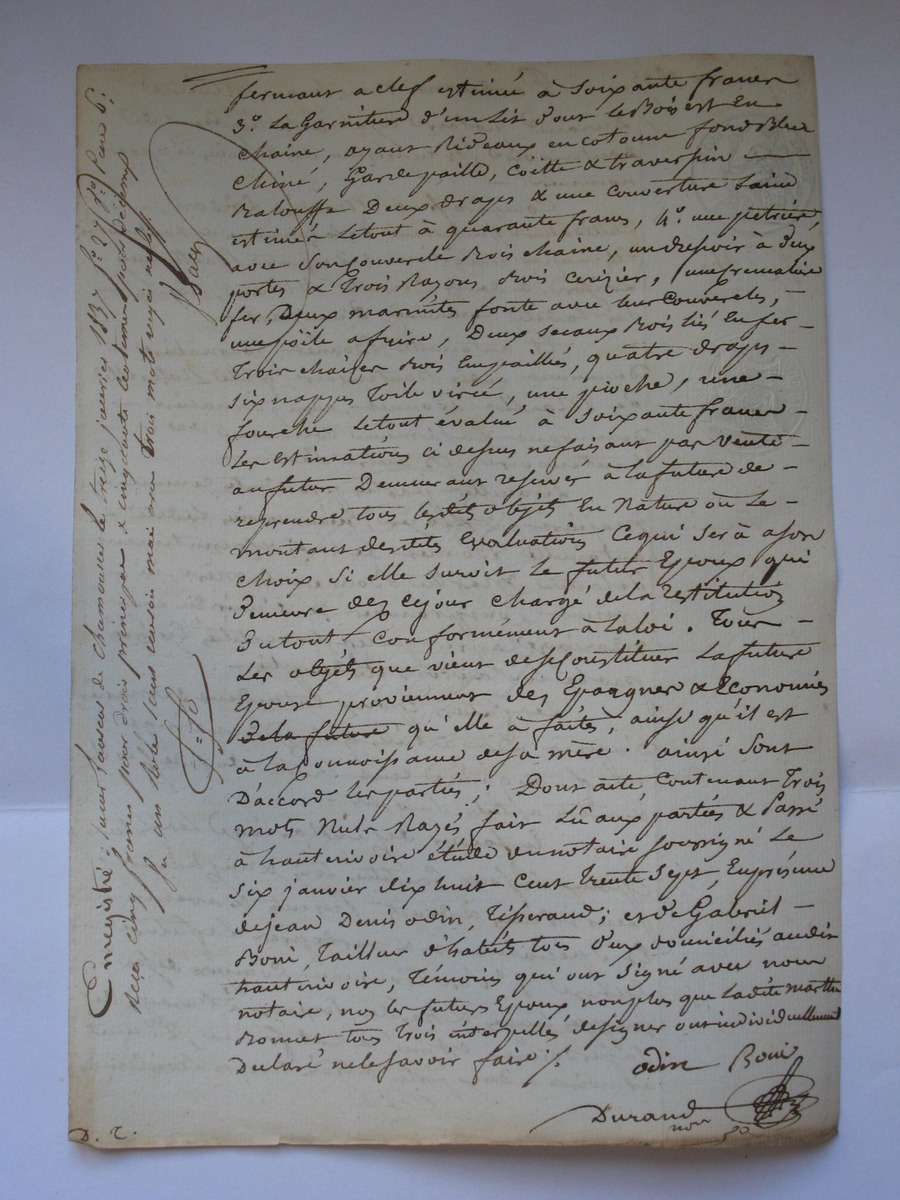 fermant a clef estimée à Soixante francs
3.° La Garniture d'un Lit dont le Bois est En
chaine, ayant Rideaux en cotonne fond Bleu
chiné, Gardepaille, coitte & traverpin
Ralouffe Deux draps & une couverture Laine
estimés Letout à quarante francs, 4.° une petrière
avec Son Couvercle Bois chaine, un drepoir à deux
portes & Trois Rayons Bois cerizier, une cremalière
fer, Deux marmites fonte avec leur Couvercles,
une pöile a frire, Deux Seaux Bois liés En fer
Trois chaises Bois Enpaillés, quatre draps
six nappes Toile virié, une pioche, une
fourche Letout évalué à Soixante francs
Les Estimations ci dessus ne faisant pas Vente
au futur Demeurant reservé à la future de
reprendre tous lesdits objets En Nature ou Le
montant desdites Evaluations Cequi Sera a son
choix Si elle survit Le futur Epoux qui
demeure dez cejour chargé dela restitution
Dutout Conformément à la loi. Tous
Les objets que vient deseConstituer La future
Epouse proviennent des Epargnes & Economies
dela future qu'elle a faites, ainsi qu'il est
à la Connoissance desa mère. ainsi Sont
D'accord les parties; Dont acte, Contenant Trois
mots Nuls Rayés fait Lû aux parties & Passé
à hauterivoire étude du notaire Soussigné Le
Six janvier dix huit Cent trente Sept, En présence
de jean Denis odin, Tisserand; et de Gabriel
Boni, Tailleur d'habits tous deux domiciliés audit
hauterivoire, Témoins qui ont Signé avec nous
notaire, non les futurs Epoux nonplus que Ladite marthe
Bonnet tous Trois interpellés designer ont individuellement
Declaré ne le Savoir faire ./.
odin Boni
Durand
no.re
D. T.
Enregistré à Saint Laurent de Chamousset le treize janvier 1837 f.° 27 r.°
Reçu cinq francs pour droit principal & cinquante centimes pour le décime